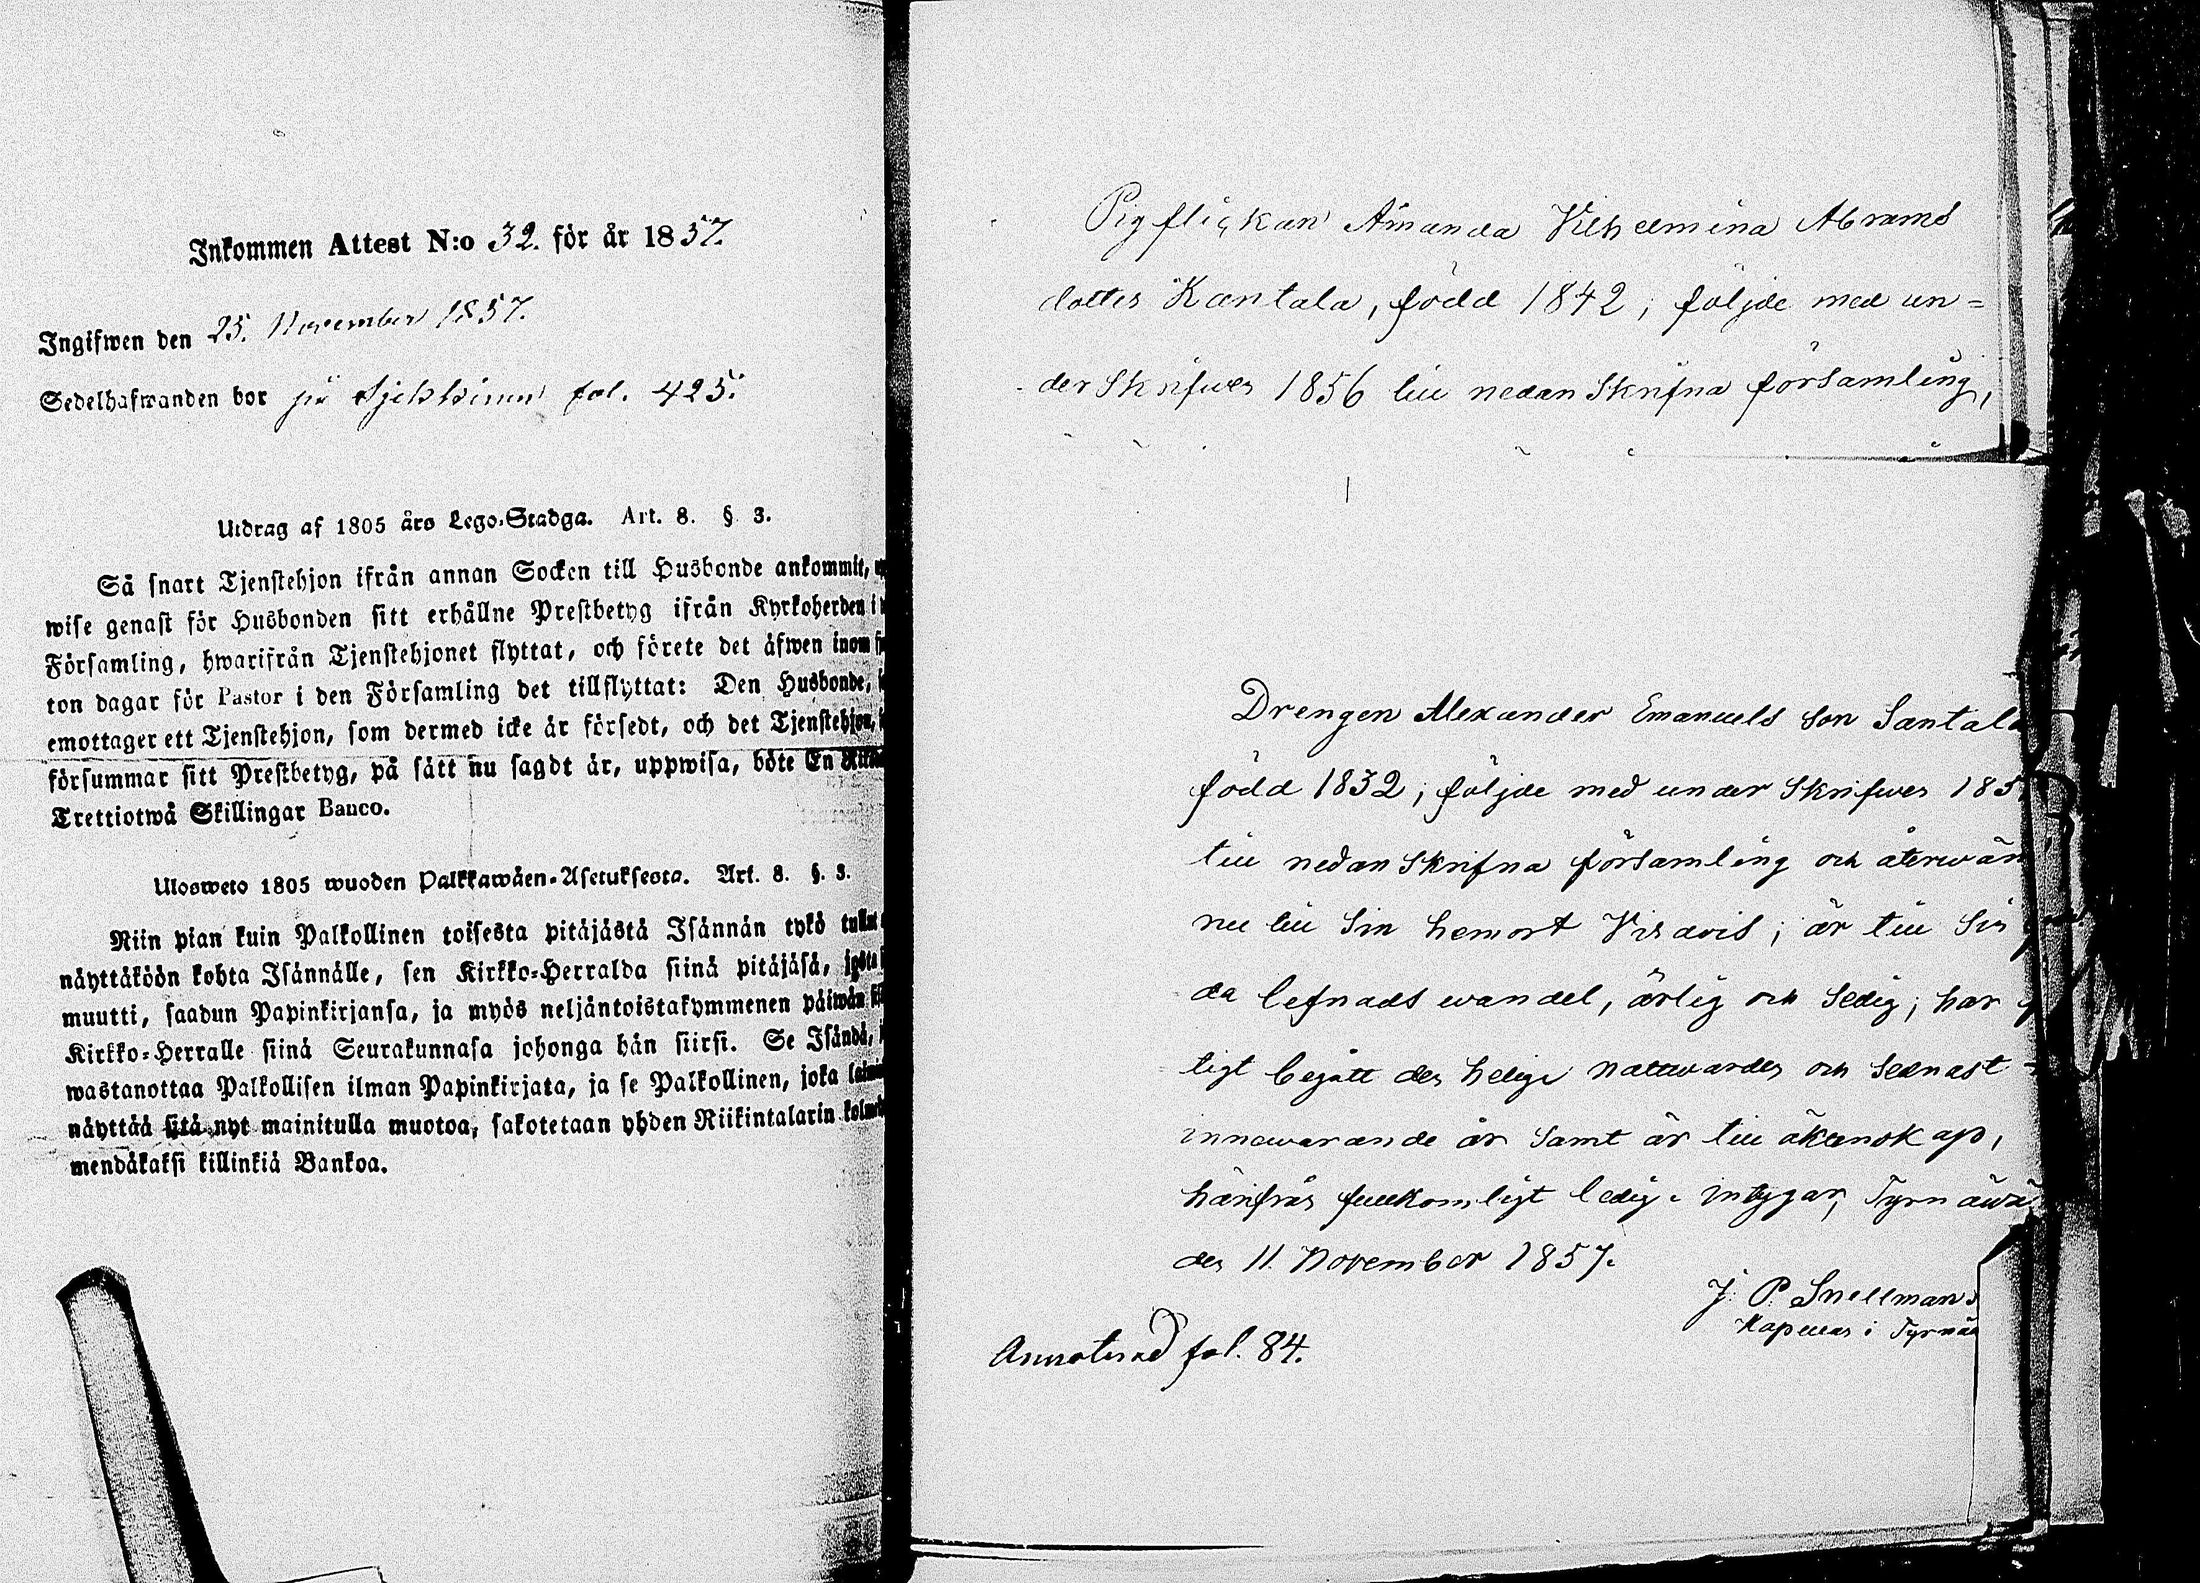 Inkommen Attest N:o 32. för år 1857.
Ingifwen den 25. November 1857.
Sedelhafwanden bor på fol. 425.
Utdrag af 1805 års Lego-Stadga. Art. 8. § 3.
Så snart Tjenstehjon ifrån annan Socken till Husbonde ankommit,
wise genast för Husbonden sitt erhållne Prestbetyg ifrån Kyrkoherden i
Församling, hwarifrån Tjenstehjonet flyttat, och förete det äfwen inom
ton dagar för Pastor i den Församling det tillflyttat: Den Husbonde,
emottager ett Tjenstehjon, som dermed icke är försedt, och det Tjenstehjon,
försummar sitt Prestbetyg, på sätt nu sagdt är, uppwisa, böte En
Trettiotwå Skillingar Banco.
Ulosweto 1805 wuoden Palkkawäen-Asetuksesta. Art. 8. §. 3.
Niin pian kuin Palkollinen toisesta pitäjästä Isännän tykö
näyttäköön kohta Isännälle, sen Kirkko-Herralda siinä pitäjäsä,
muutti, saadun Papinkirjansa, ja myös neljäntoistakymmenen päiwän
Kirkko-Herralle siinä Seurakunnasa johonga hän siirsi. Se Isändä,
wastanottaa Palkollisen ilman Papinkirjata, ja se Palkollinen, joka
näyttää sitä nyt mainitulla muotoa, sakotetaan yhden Riikintalarin
mendäkaksi killinkiä Bankoa.
Pigflickan Amanda Vilhelmina Abrams
dotter Kantala, född 1842, följde med un=
derskrifwen 1856 till nedanskrifna församling,
Drengen Alexander Emanuels son Santala
född 1832, följde med underskrifwen 185
till nedanskrifna församling och återwän
nu till sin hemort ; är till sin
da lefnads wandel, ärlig och sedig; har
ligt begått den helige nattwarden och sednast
innewarande år samt är till äktenskap,
härifrån fullkomligt ledig. intygar, Tyrnäwä
den 11 November 1857.
J. P. Snellman
Kapellan i Tyrnä
Annoterad fol. 84.